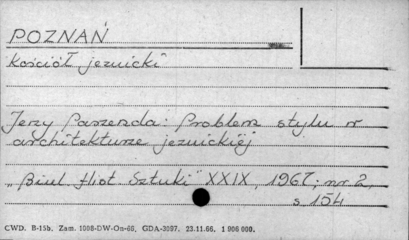 POZNAŃ
Kościół jezuicki
Jerzy Paszenda: Problem stylu w
architekturze jezuickiej
„Biul. Hist Sztuki" XXIX, 1967, nr 2,
s 154
CWD. B-15b. Zam. 1098-DW-On-66, GDA-3897. 23.11.66. 1 906 000.